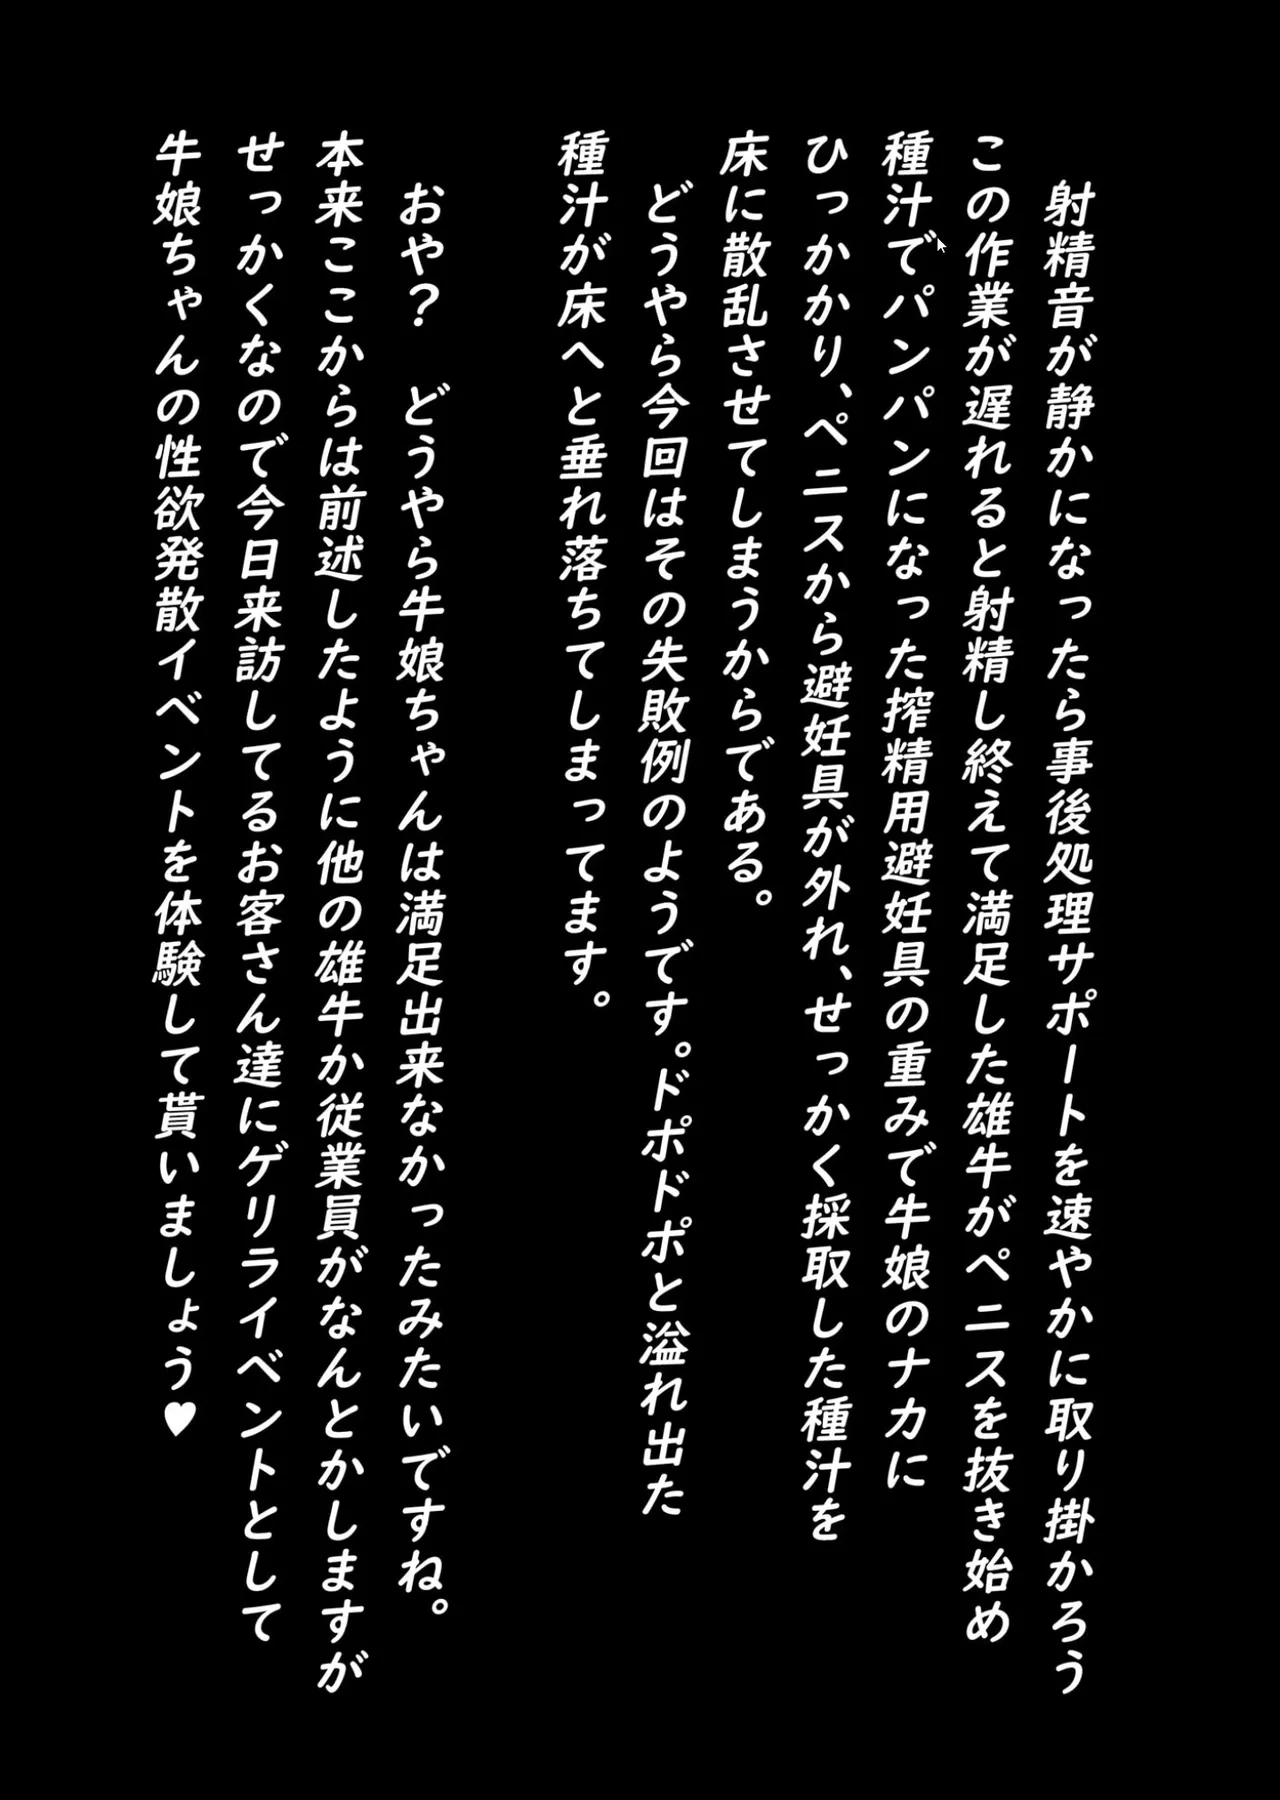 射精音が静かになったら事後処理サポートを速やかに取り掛かろう
この作業が遅れると射精し終えて満足した雄牛がペニスを抜き始め
種汁でパンパンになった搾精用避妊具の重みで牛娘のナカに
ひっかかり、ペニスから避妊具が外れ、せっかく採取した種汁を
床に散乱させてしまうからである。
どうやら今回はその失敗例のようです。ドポドポと溢れ出た
種汁が床へと垂れ落ちてしまってます。
おや？　どうやら牛娘ちゃんは満足出来なかったみたいですね。
本来ここからは前述したように他の雄牛か従業員がなんとかしますが
せっかくなので今日来訪してるお客さん達にゲリライベントとして
牛娘ちゃんの性欲発散イベントを体験して貰いましょう♥